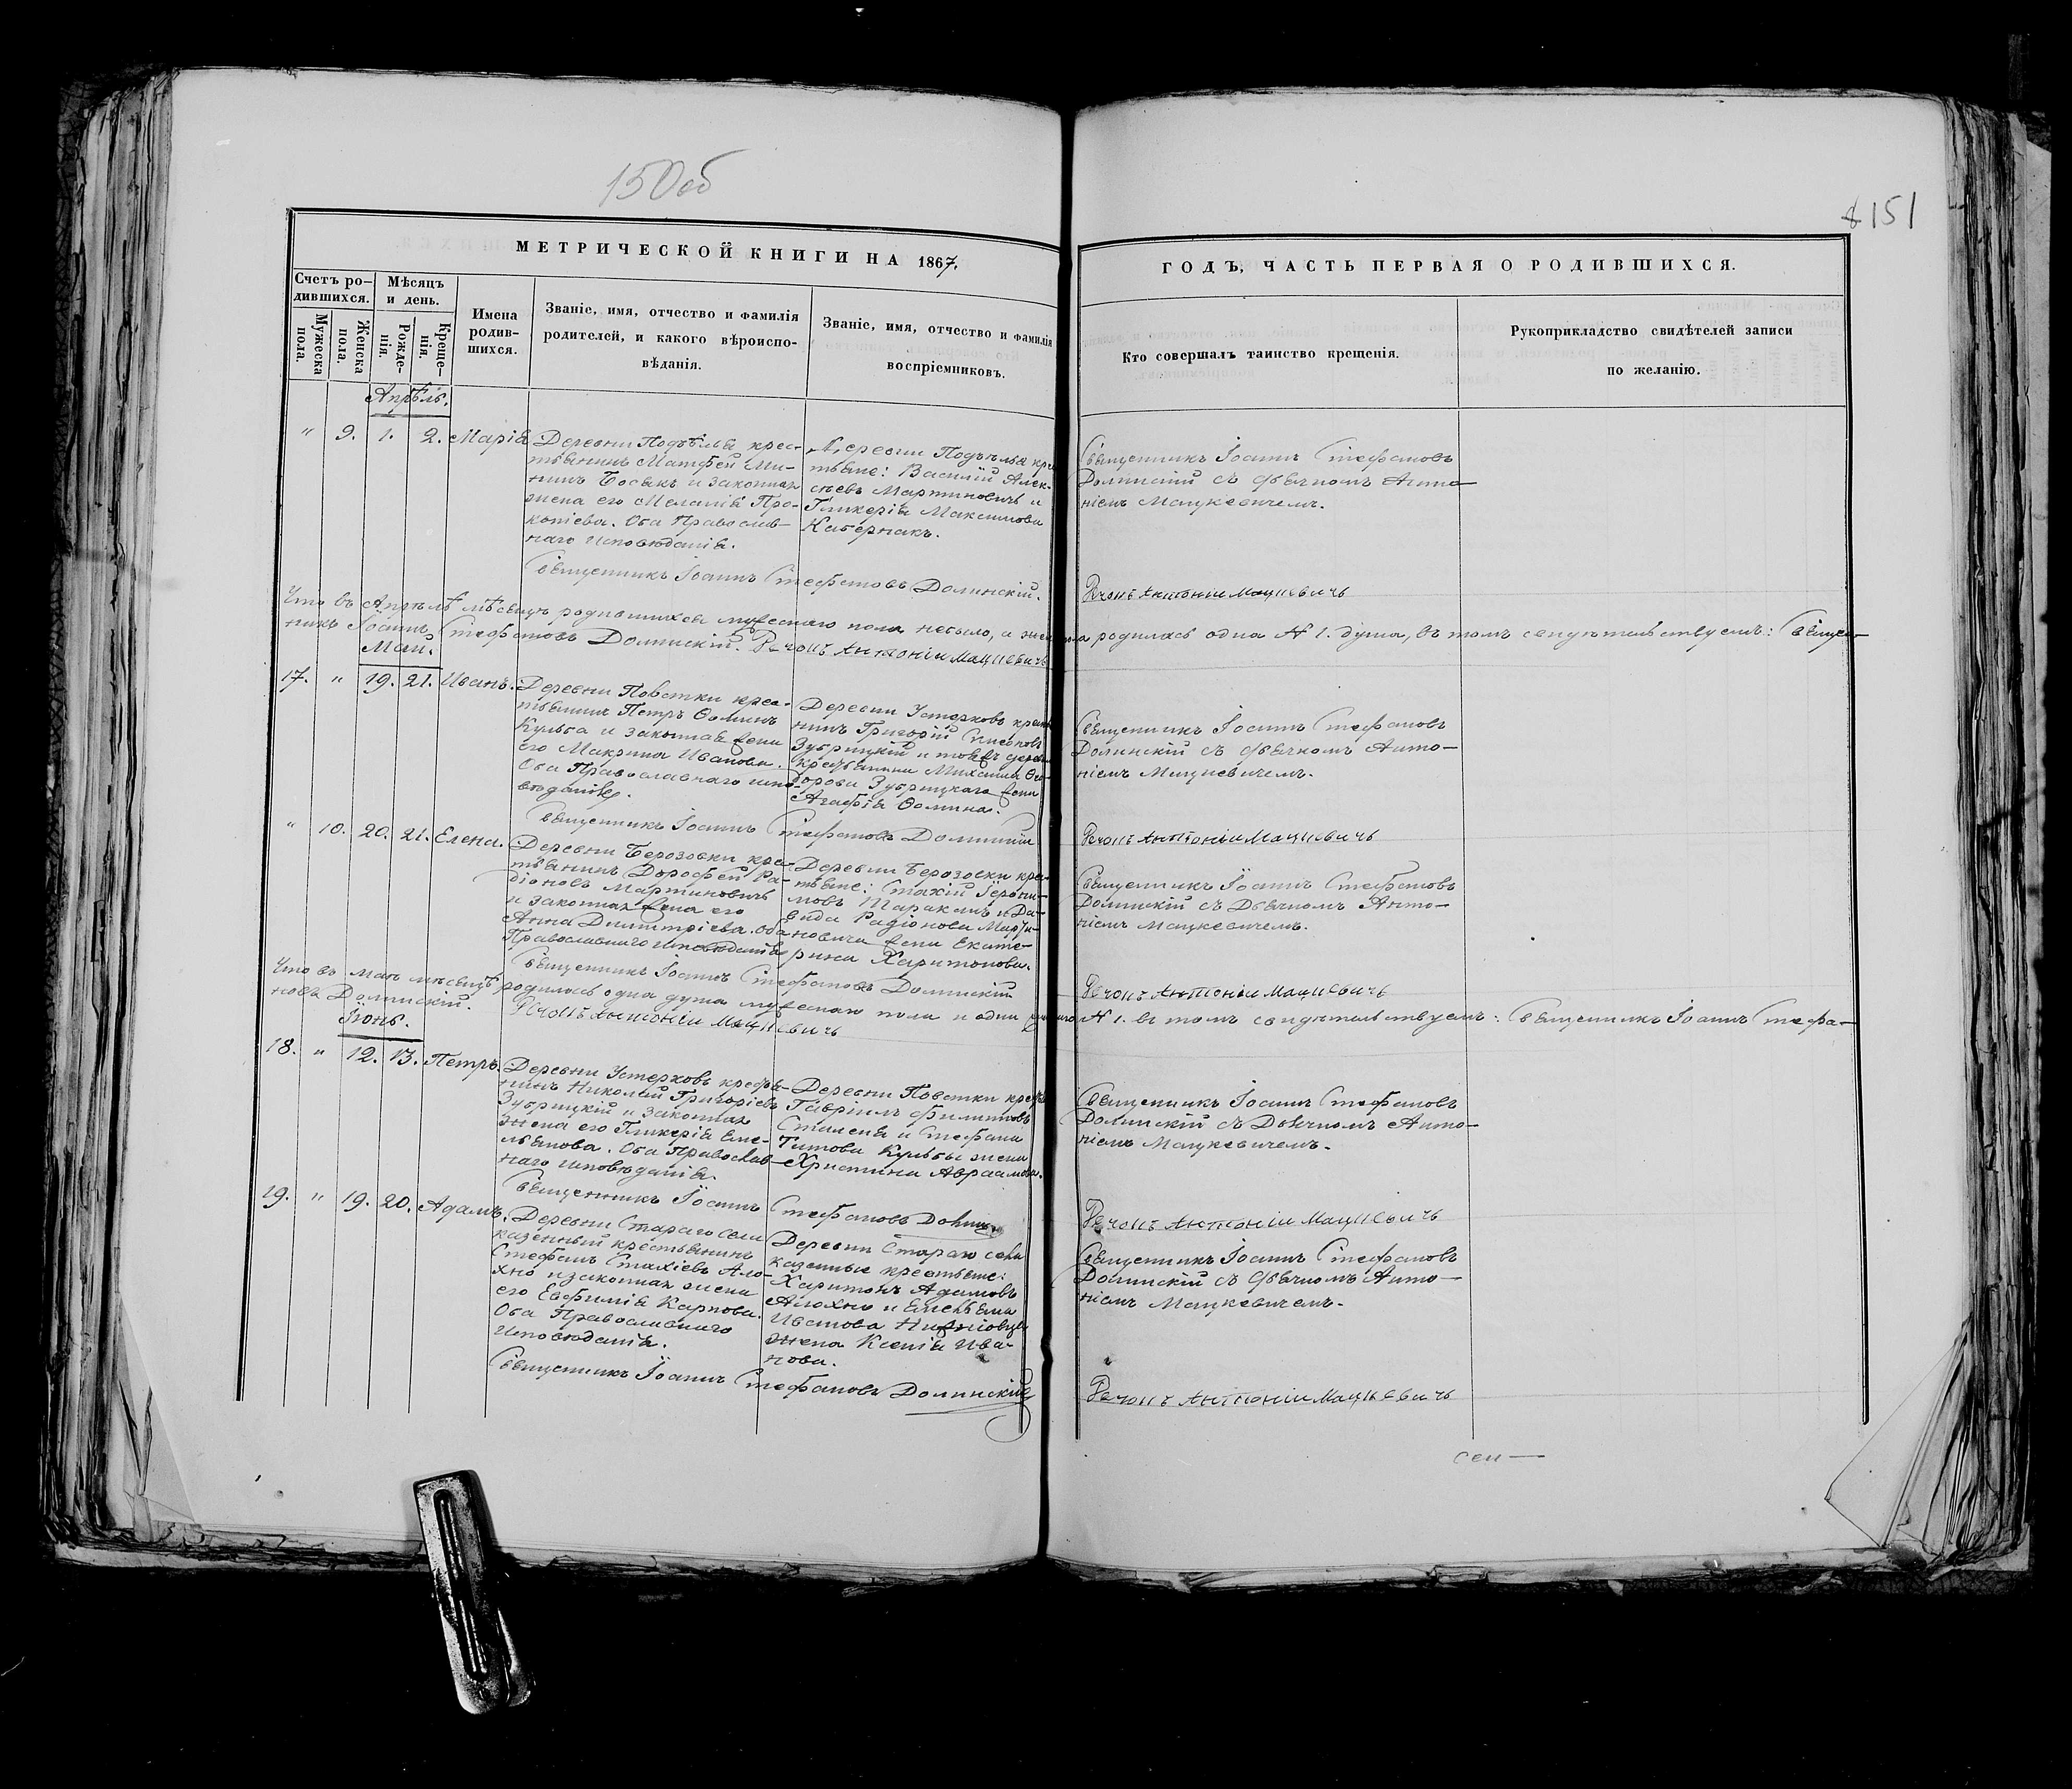 150об
151
МЕТРИЧЕСКОЙ КНИГИ НА 1867.
ГОДЪ, ЧАСТЬ ПЕРВАЯ О РОДИВШИХСЯ.
Счетъ ро-
дившихся.
Мужеска
пола.
Женска
пола.
Мѣсяцъ
и день.
Рожде-
нія.
Креще-
нія.
Имена
родив-
шихся.
Званіе, имя, отчество и фамилія
родителей, и какого вѣроиспо-
вѣданія.
Званіе, имя, отчество и фамилія
воспріемниковъ.
Кто совершалъ таинство крещенія.
Рукоприкладство свидѣтелей записи
по желанію.
Апрѣль.
" 9. 1. 2. Марія
Деревни Подъѣлья крес-
тьянинъ Матфей Ми-
нинъ и законная
жена его Меланія Про-
копіева. Оба Православ-
наго исповѣданія.
Деревни Подъѣлья
тьяне: Василій Алек-
сѣевъ Мартиновичъ и
Гликерія Максимова
Кабернакъ.
Священникъ Іоаннъ Стефановъ
Долинскій съ дьячкомъ Анто-
ніемъ Мацкевичемъ.
Священникъ Іоаннъ Стефановъ Долинскій.
Антоній Мацкевичъ
Что въ Апрѣлѣ мѣсяцѣ родившихся мужескаго пола небыло, а родилась одна № 1. душа, въ томъ свидѣтельствуемъ: Священ-
никъ Іоаннъ Стефановъ Долинскій. Антоній Мацкевичъ
Май.
17. " 19. 21. Иванъ.
Деревни Повстки крес-
тьянинъ Петръ Ѳоминъ
Кульба и законная жена
его Макрина Иванова.
Оба Православнаго испо-
вѣданія.
Деревни Устерховъ
нинъ Григорій
Зубрицкій и
крестьянина Михаила Ѳео-
дорова Зубрицкаго жена
Агафія Ѳомина.
Священникъ Іоаннъ Стефановъ
Долинскій съ дьячкомъ Анто-
ніемъ Мацкевичемъ.
Священникъ Іоаннъ Стефановъ Долинскій
Антоній Мацкевичъ
" 10. 20. 21. Елена.
Деревни Берозовки крес-
тьянинъ Дорофей Ра-
діоновъ Мартиновичъ
и законная жена его
Анна Димитріева. Оба
Православнаго исповѣданія
Деревни Берозовки крес-
тьяне: Стахій Іерони-
мовъ Тараканъ и Да-
вида Радіонова Марти-
новича жена Екате-
рина Харитонова.
Священникъ Іоаннъ Стефановъ
Долинскій съ Дьячкомъ Анто-
ніемъ Мацкевичемъ.
Священникъ Іоаннъ Стефановъ Долинскій
Антоній Мацкевичъ
Что въ маѣ мѣсяцѣ родилась одна душа мужескаго пола и одна № 1. въ томъ свидѣтельствуемъ: Священникъ Іоаннъ Стефа-
новъ Долинскій. Антоній Мацкевичъ
Іюнь.
18. " 12. 13. Петръ.
Деревни Устерховъ крестья-
нинъ Николай Григоріевъ
Зубрицкій и законная
жена его Гликерія Еме-
льянова. Оба Православ-
наго исповѣданія.
Деревни Повстки
Гавріилъ Филиповъ
и Стефана
Титова Кульбы жена
Христина Авраамова.
Священникъ Іоаннъ Стефановъ
Долинскій съ Дьячкомъ Анто-
ніемъ Мацкевичемъ.
Священникъ Іоаннъ Стефановъ
Антоній Мацкевичъ
19. " 19. 20. Адамъ.
Деревни Стараго села
казенный крестьянинъ
Стефанъ Стахіевъ Ало-
хно и законная жена
его Евфимія Карпова.
Оба Православнаго
Исповѣданія.
Деревни Стараго села
казенные крестьяне:
Харитонъ Адамовъ
Алохно и Емельяна
Иванова
жена Ксенія Ива-
нова.
Священникъ Іоаннъ Стефановъ
Долинскій съ дьячкомъ Анто-
ніемъ Мацкевичемъ.
Священникъ Іоаннъ Стефановъ Долинскій
Антоній Мацкевичъ
сен—